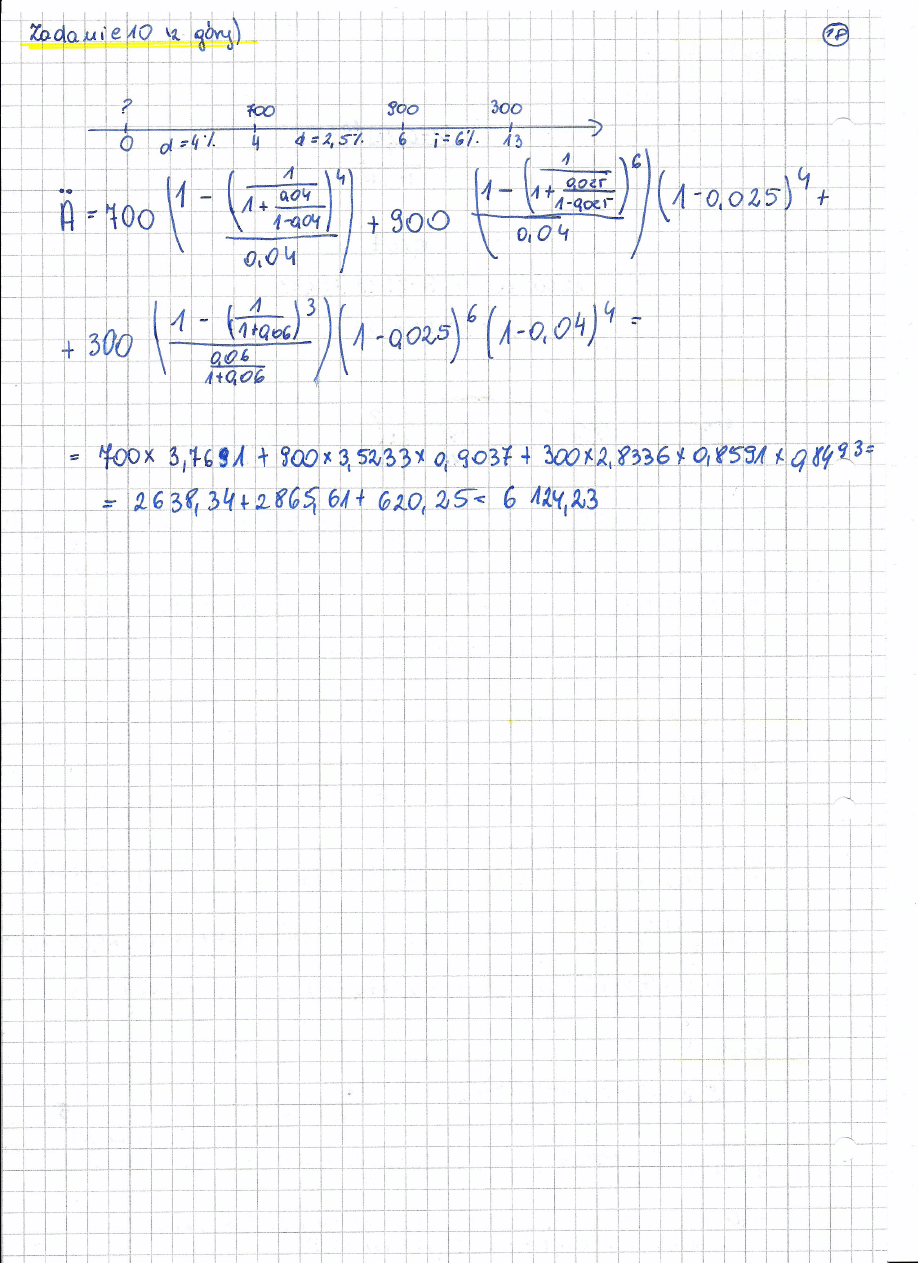 Zadanie 10 (z góry)
18
? 700 900 300
0 d=4% 4 d=2,5% 6 i=6% 13
Ä = 700 (1 - (1/(1+0,04/(1-0,04)))^4 / 0,04) + 900 (1 - (1/(1+0,025/(1-0,025)))^6 / 0,04) (1-0,025)^4 +
+ 300 (1 - (1/(1+0,06))^3 / (0,06/(1+0,06))) (1-0,025)^6 (1-0,04)^4 =
= 700 x 3,7691 + 900 x 3,5233 x 0,9037 + 300 x 2,8336 x 0,8591 x 0,8493 =
= 2638,34 + 2865,61 + 620,25 = 6 124,23